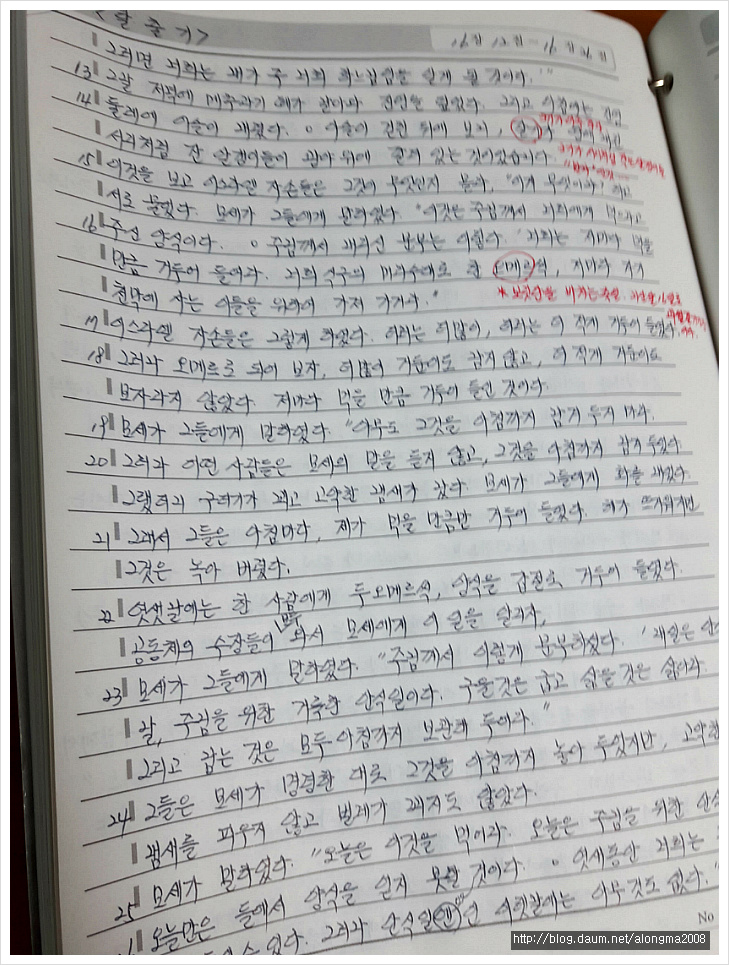 <탈출기>
16장 12절 - 16장 26절
그러면 너희는 내가 주 너희 하느님임을 알게 될 것이다.'"
13 그날 저녁에 메추라기 떼가 날아와 진영을 덮었다. 그리고 아침에는 진영
14 둘레에 이슬이 내렸다. ㅇ 이슬이 걷힌 뒤에 보니,
서리처럼 잔 알갱이들이 광야 위에 깔려 있는 것이었습니다.
15 이것을 보고 이스라엘 자손들은 그것이 무엇인지 몰라, "이게 무엇이냐?" 하고
서로 물었다. 모세가 그들에게 말하였다. "이것은 주님께서 너희에게 먹으라고
16 주신 양식이다. ㅇ 주님께서 내리신 분부는 이렇다. '너희는 저마다 먹을
만큼 거두어 들여라. 너희 식구의 머리수대로 한 오메르씩, 저마다 자기
천막에 사는 이들을 위하여 가져 가거라."
17 이스라엘 자손들은 그렇게 하였다. 더러는 더많이, 더러는 더 적게 거두어 들였다.
18 그러나 오메르로 되어 보자, 더많이 거둔이도 남지 않고, 더 적게 거둔이도
모자라지 않았다. 저마다 먹을 만큼 거두어 들인 것이다.
19 모세가 그들에게 말하였다. "아무도 그것을 아침까지 남겨 두지 마라.
20 그러나 어떤 사람들은 모세의 말을 듣지 않고, 그것을 아침까지 남겨 두었다
그랬더니 구더기가 꾀고 고약한 냄새가 났다. 모세가 그들에게 화를 내었다.
21 그래서 그들은 아침마다, 제가 먹을 만큼만 거두어 들였다. 해가 뜨거워지면
그것은 녹아 버렸다.
22 엿샛날에는 한 사람에게 두오메르씩, 양식을 갑절로 거두어 들였다.
공동체의 수장들이 모두 와서 모세에게 이 일을 알리자,
23 모세가 그들에게 말하였다. "주님께서 이렇게 분부하셨다. '내일은 안식
날, 주님을 위한 거룩한 안식일이다. 구울것은 굽고 삶을것은 삶아라.
그리고 남는 것은 모두 아침까지 보관해 두어라."
24 그들은 모세가 명령한 대로 그것을 아침까지 놓아 두었지만, 고약한
냄새를 피우지 않고 벌레가 꾀지도 않았다.
25 모세가 말하였다. "오늘은 이것을 먹어라. 오늘은 주님을 위한 안식
오늘만은 들에서 양식을 얻지 못할 것이다. ㅇ 엿새동안 너희는
수 있다. 그러나 안식일 이렛날에는 아무것도 없다."
No
http://blog.daum.net/alongma2008